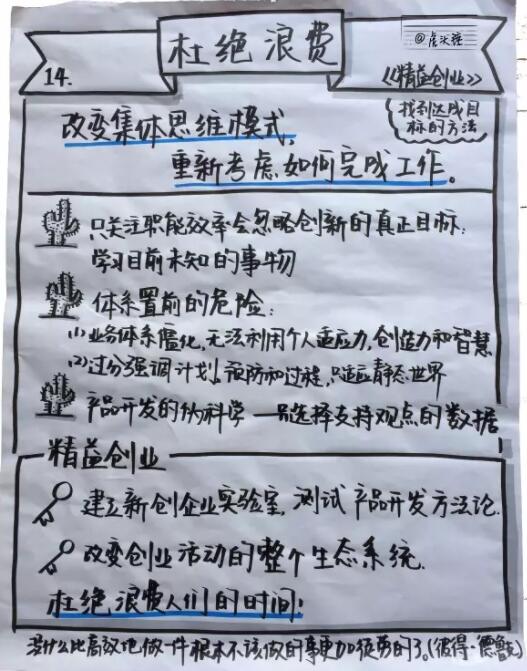 杜绝浪费
14.
《精益创业》
找到达成目
标的方法
改变集体思维模式,
重新考虑如何完成工作。
只关注职能效率会忽略创新的真正目标:
学习目前未知的事物
体系置前的危险:
(1)业务体系僵化,无法利用个人适应力,创造力和智慧
(2)过分强调计划、预防和过程,只适应静态世界
产品开发的伪科学—只选择支持观点的数据
精益创业
建立新创企业实验室,测试产品开发方法论.
改变创业活动的整个生态系统.
杜绝浪费人们的时间:
没什么比高效地做一件根本不该做的事更加徒劳的了。(彼得·德鲁克)